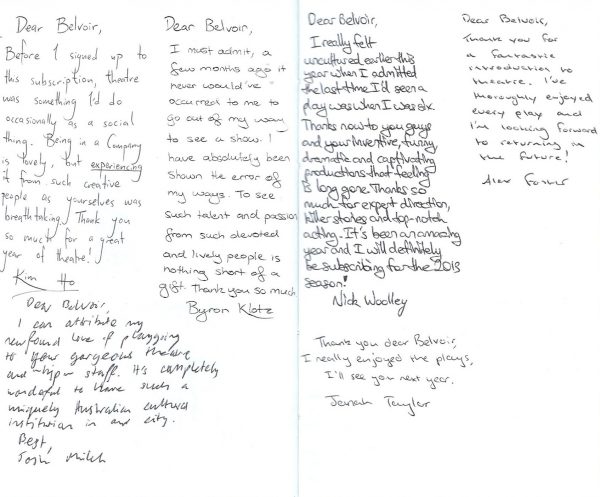 Dear Belvoir,
Before I signed up to
this subscription, theatre
was something I'd do
occasionally as a social
thing. Being in a Company
is lovely, but experiencing
it from such creative
people as yourselves was
breathtaking. Thank you
so much for a great
year of theatre!
Kim Ho
Dear Belvoir,
I can attribute my
newfound love of playgoing
to your gorgeous theatre
and staff. It's completely
wonderful to have such a
uniquely Australian cultural
institution in our city.
Best,
Josh
Dear Belvoir,
I must admit, a
few months ago it
never would've
occurred to me to
go out of my way
to see a show. I
have absolutely been
shown the error of
my ways. To see
such talent and passion
from such devoted
and lively people is
nothing short of a
gift. Thank you so much.
Byron Klotz
Dear Belvoir,
I really felt
uncultured earlier this
year when I admitted
the last time I'd seen a
play was when I was six.
Thanks now to you guys
and your inventive, funny,
dramatic and captivating
productions that feeling
is long gone. Thanks so
much for expert direction,
killer stories and top-notch
acting. It's been an amazing
year and I will definitely
be subscribing for the 2013
season!
Nick Woolley
Dear Belvoir,
Thank you for
a fantastic
introduction to
theatre. I've
thoroughly enjoyed
every play and
I'm looking forward
to returning in
the future!
Alex
Thank you dear Belvoir,
I really enjoyed the plays,
I'll see you next year.
Jannah Taylor